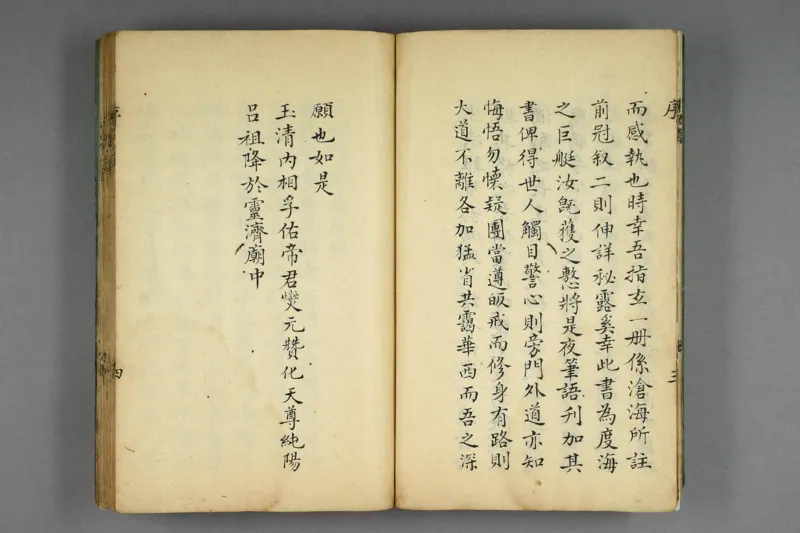 序
而感執也時幸吾指玄一册係滄海所註
前冠叙二則伸詳秘露奚幸此書為度海
之巨艇汝旣獲之憗將是夜筆語刋加其
書俾得世人觸目警心則旁門外道亦知
悔悟勿懐疑團當遵皈戒而修身有路則
大道不離各加猛省共靄華西而吾之深
三
願也如是
玉清内相孚佑帝君爕元贊化天尊純陽
吕祖降於靈濟廟中
序
四